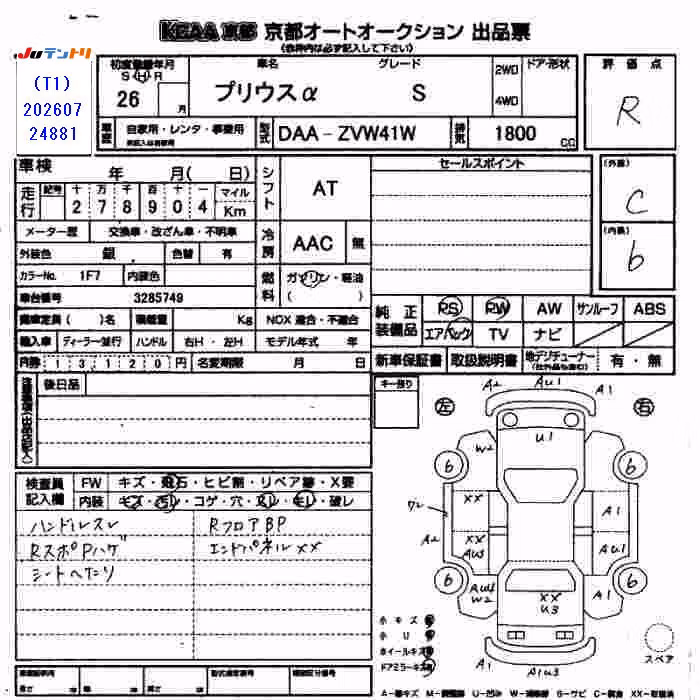 KCAA京都 京都オートオークション 出品票
(赤枠内は必ず記入して下さい)
JUテントリ
(T1)
202607
24881
初度登録年月
S H R
26 月
車名
プリウスα
グレード
S
2WD
4WD
ドア・形状
評価点
R
車歴
自家用・レンタ・事業用
型式
DAA-ZVW41W
排気
1800
CC
車検
年 月( 日)
シフト
AT
セールスポイント
(外装)
C
(内装)
b
走行
記号
十 万 千 百 十 一
2 7 8 9 0 4
マイル
Km
メーター歴
交換車・改ざん車・不明車
冷房
AAC
無
外装色
銀
色替
有
カラーNo.
1F7
内装色
燃料
ガソリン・軽油
( )
車台番号
3285749
乗車定員
( )名
積載量
Kg
NOX 適合・不適合
輸入車
ディーラー・並行
ハンドル
右H・左H
モデル年式
年
純正装備品
RS
RW
AW
サンルーフ
ABS
エアバック
TV
ナビ
新車保証書
取扱説明書
地デジチューナー
有・無
円券
1 3 1 2 0
円
名変期限
月
日
後日品
キー預り
左
右
検査員記入欄
FW
キズ・飛石・ヒビ割・リペア跡・X要
内装
キズ・汚レ・コゲ・穴・スレ・キレ・破レ
ハンドルスレ
RフロアBP
RスポPハゲ
エンドパネルXX
シートヘタリ
A2
AU1
A1
W2
U1
b
b
XX
A1
A2
XX
AU3
AU1
b
b
W2
XX
U3
A1
A1
AU3
小キズ
ホイールキズ
ドアミラーキズ
スペア